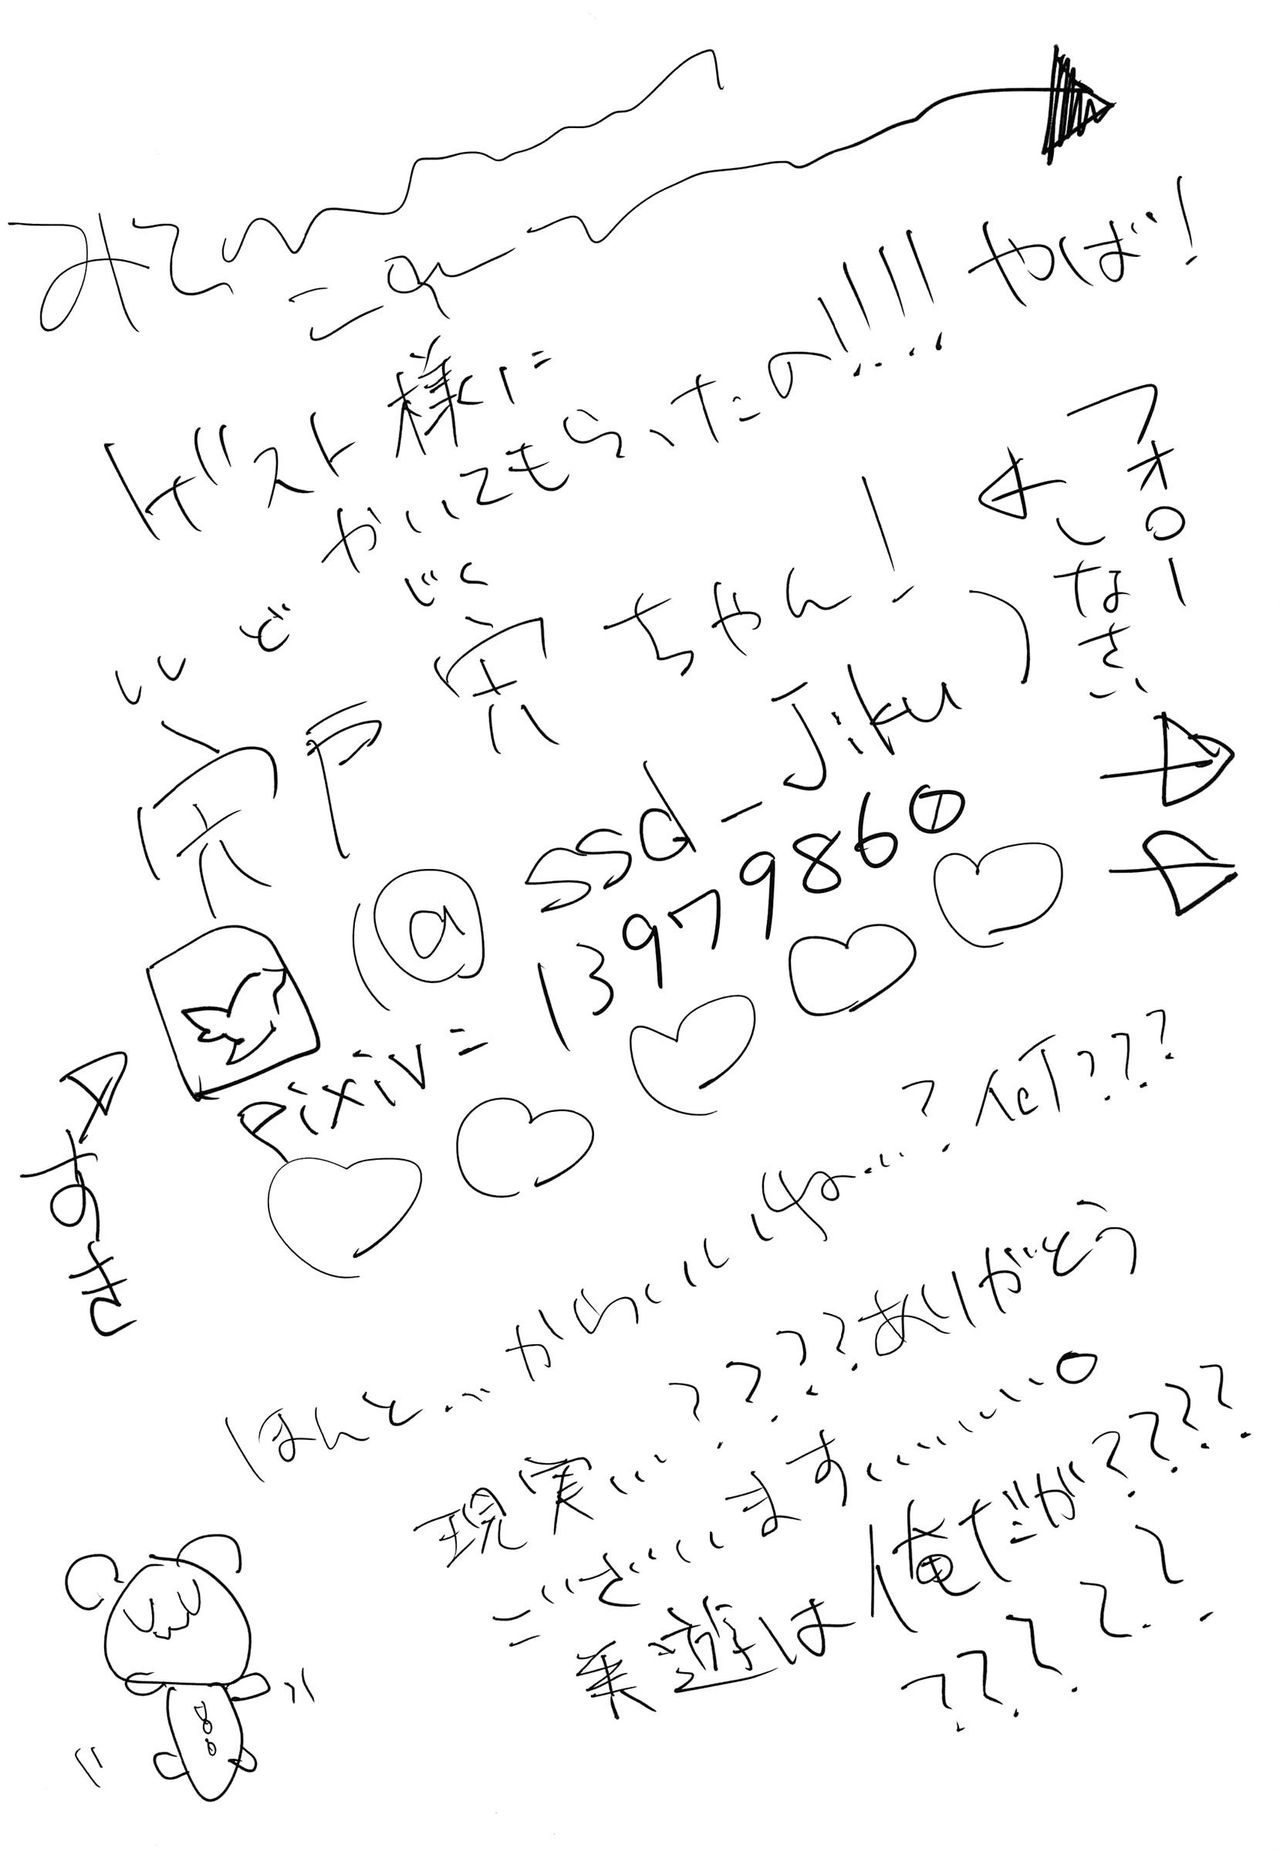 みて
これ
ゲスト様に
かいてもらったの!!!! やば!
フォロー
しなさい
ししど じく
宍戸 宍ちゃん!
(@ssd_Jiku)
pixiv= 13979860
すき
ほんと…かわいいね…?何???
現実…????ありがとう
ございます………。
乗遊は俺だが????
?????